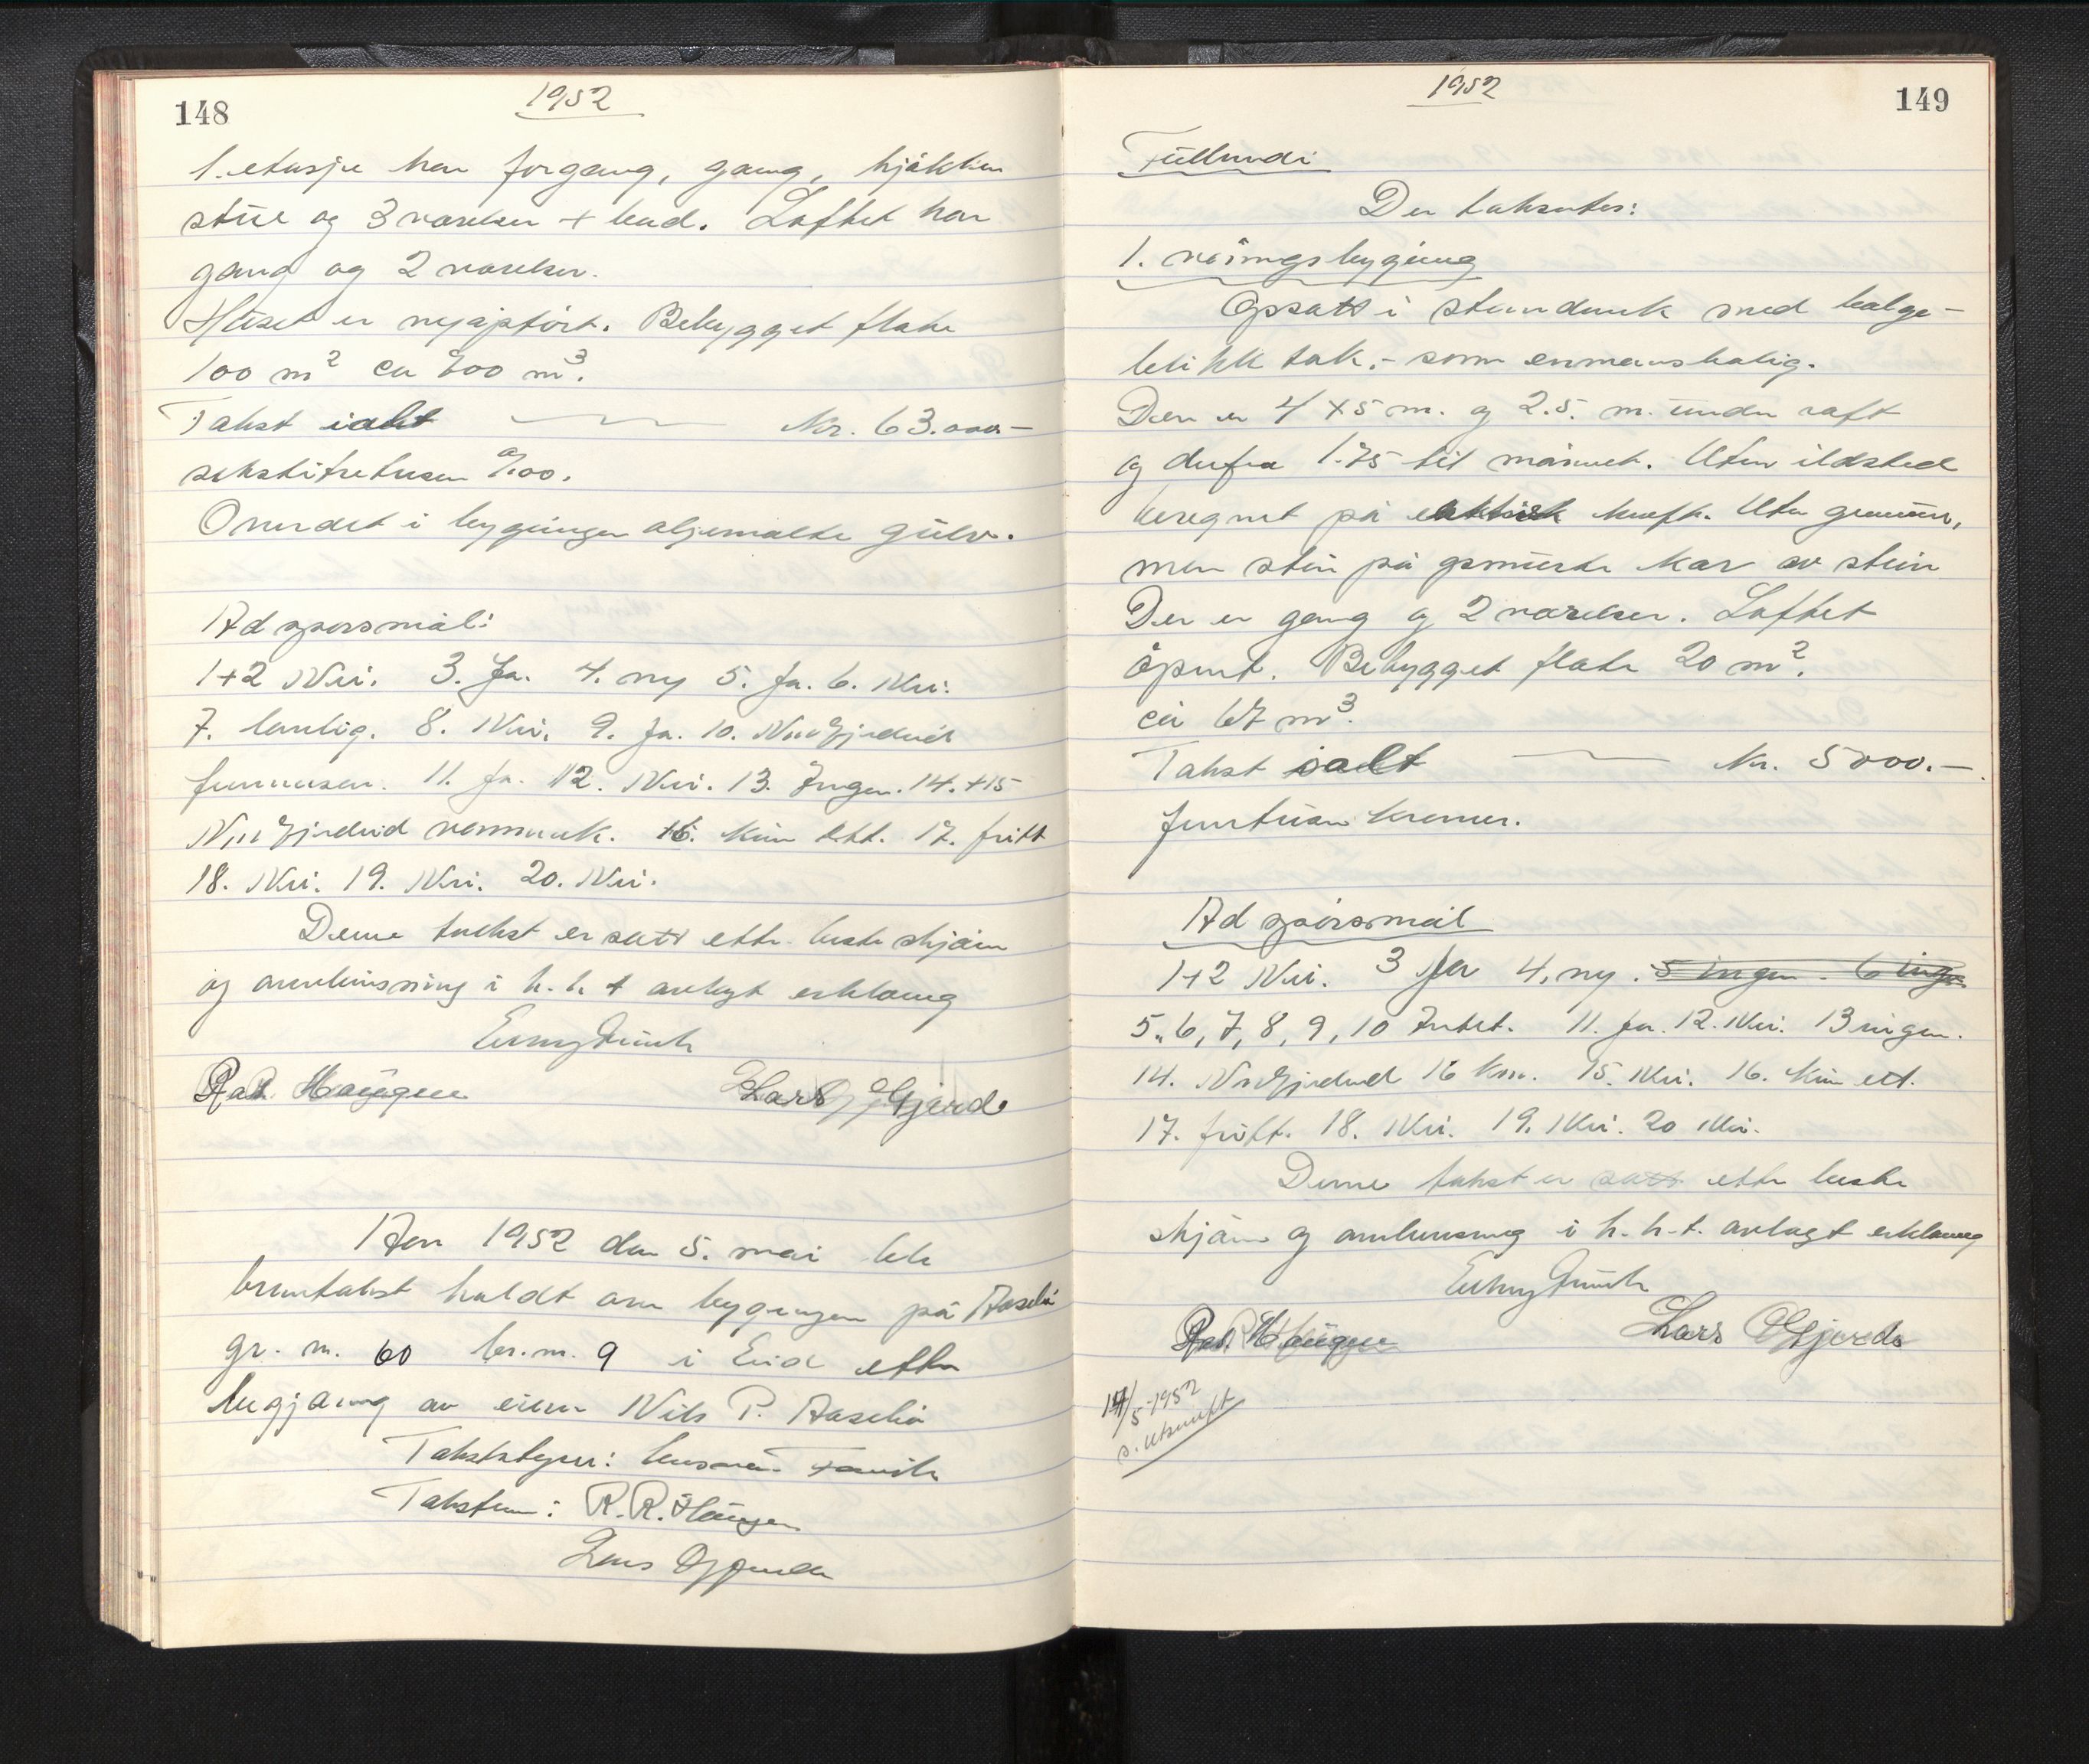 148
1952
1. etasje har forgang, gang, kjøkken
stue og 3 værelser + bad. Loftet har
gang og 2 værelser.
Huset er nyoppført. Bebygget flate
100 m² ca 600 m³.
Takst ialt — Kr. 63.000.-
sekstitretusen 0/00.
Området i bygningen oljemalte gulv.
Ad spørsmål:
1+2 Nei. 3. Ja. 4. ny 5. Ja. 6. Nei.
7. vanlig. 8. Nei. 9. Ja. 10. Nordfjordeid
11. Ja. 12. Nei. 13. Ingen. 14.+15
Nordfjordeid vannverk. 16. Kun ett. 17. fritt
18. Nei. 19. Nei. 20. Nei.
Denne takst er satt etter beste skjønn
og overbevisning i h. h. t avlagt erklæring
R. R. Haugen Lars O Gjerde
Aar 1952 den 5. mai ble
branntakst holdt over bygningen på Aaselid
gr. nr. 60 br. nr. 9 i Eid etter
begjæring av eieren Nils P. Aaselid
Takstbestyrer: lensm.
Takstmenn: R. R. Haugen
Lars O Gjerde
1952
149
Der takseres:
1. våningsbygning
Oppsatt i stenderverk med bølge-
blikk tak, - som enmannsbolig.
Den er 4 x 5 m. og 2.5. m. under raft
og derfra 1.75 til mønnet. Uten ildsted
beregnet på elektrisk kraft. Uten grunnmur,
men står på grømurte kar av stein
Der er gang og 2 værelser. Loftet
åpent. Bebygget flate 20 m².
ca 67 m³.
Takst ialt — Kr. 5000.-
femtusen kroner.
Ad spørsmål
1+2 Nei. 3 Ja 4. ny. 5 ingen. 6 ingen
5, 6, 7, 8, 9, 10 Intet. 11. Ja. 12. Nei. 13 ingen.
14. Nordfjordeid 16 km. 15. Nei. 16. Kun ett.
17. fritt. 18. Nei. 19. Nei. 20 Nei.
Denne takst er satt etter beste
skjønn og overbevisning i h. h. t. avlagt erklæring
R. R. Haugen Lars O Gjerde
14/5-1952
s. utskrift